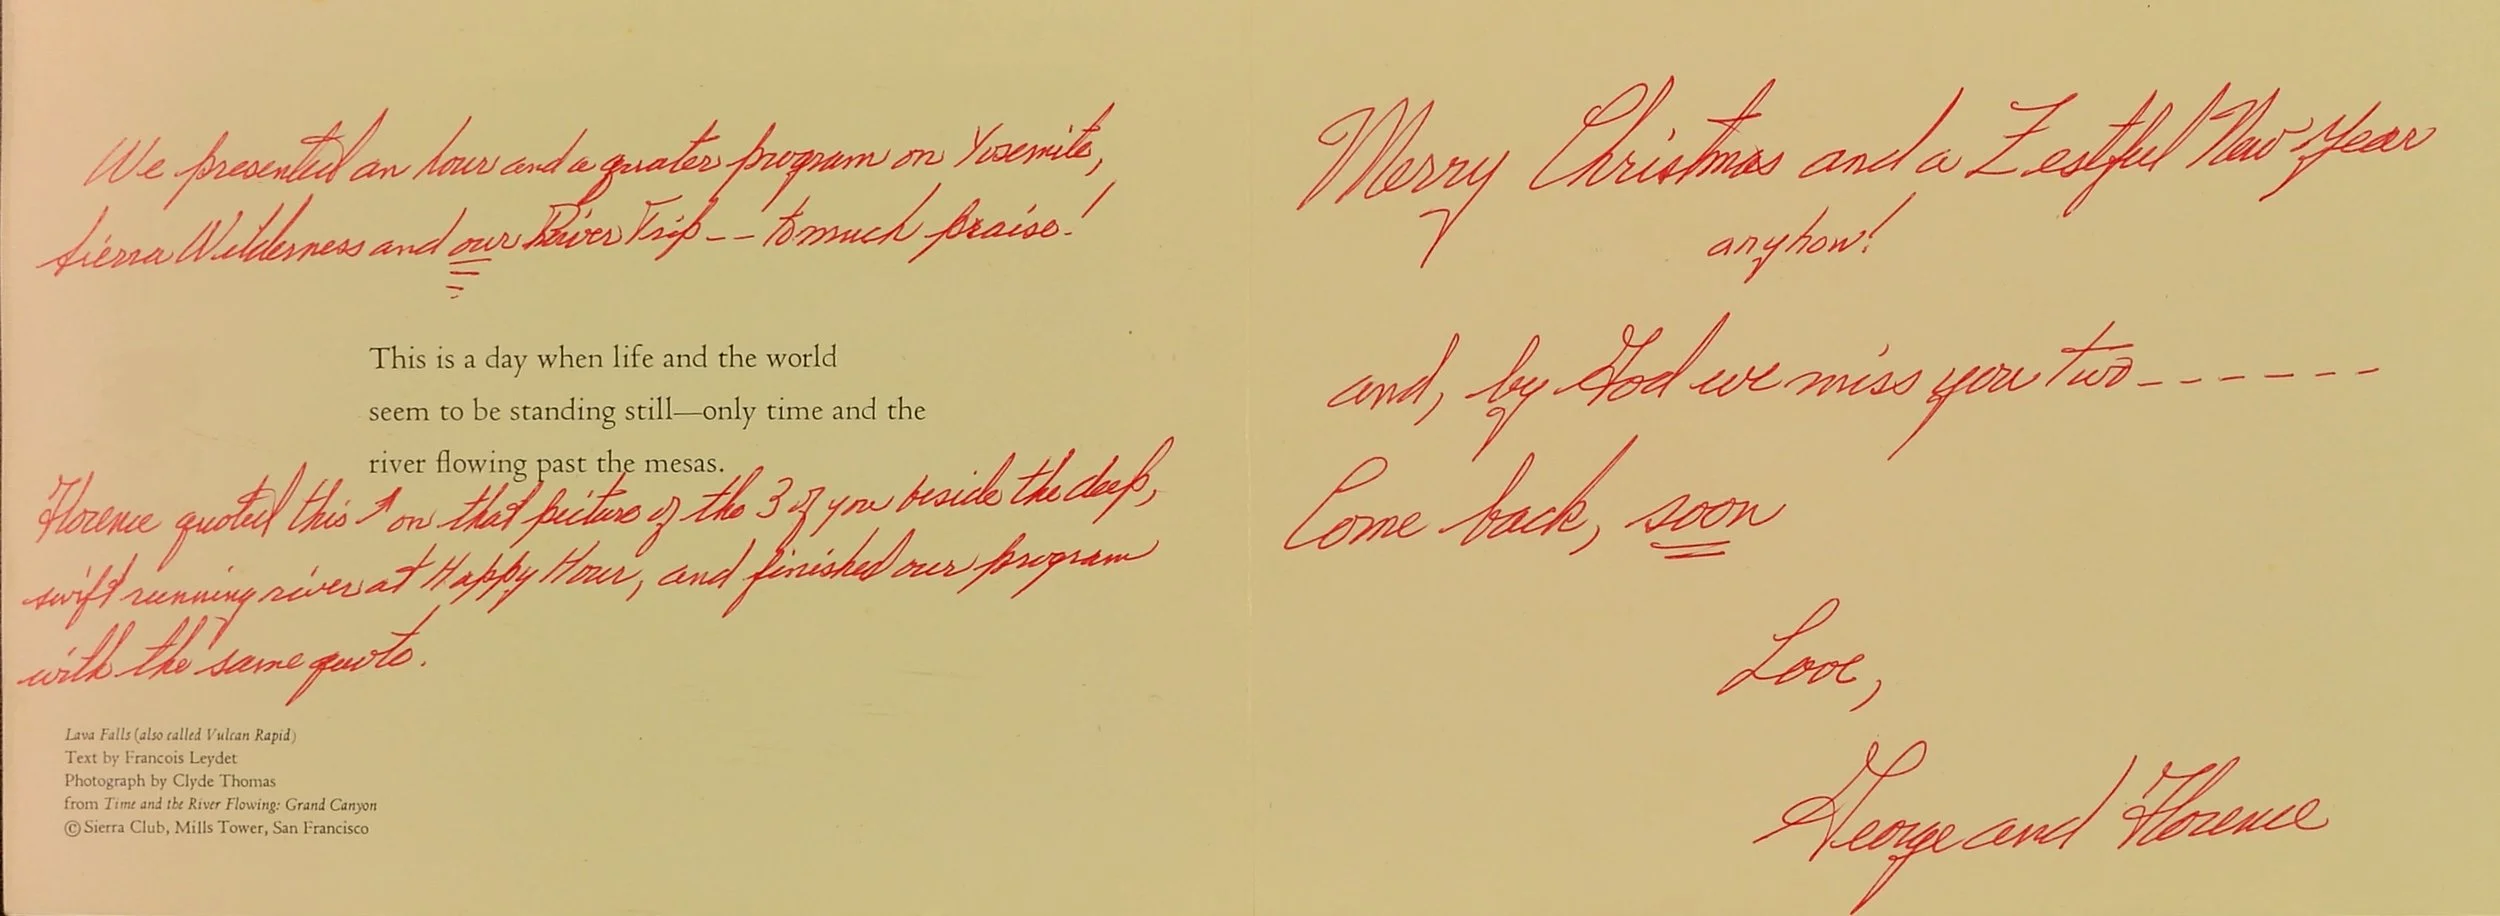 We presented an hour and a quater program on Yosemite,
Sierra Wilderness and our River Trip -- to much praise!
This is a day when life and the world
seem to be standing still—only time and the
river flowing past the mesas.
Florence quoted this ↑ on that picture of the 3 of you beside the deep,
swift running river at Happy Hour, and finished our program
with the same quote.
Lava Falls (also called Vulcan Rapid)
Text by Francois Leydet
Photograph by Clyde Thomas
from Time and the River Flowing: Grand Canyon
© Sierra Club, Mills Tower, San Francisco
Merry Christmas and a Zestful New Year
anyhow!
and, by God we miss you two ------
Come back, soon
Love,
George and Florence